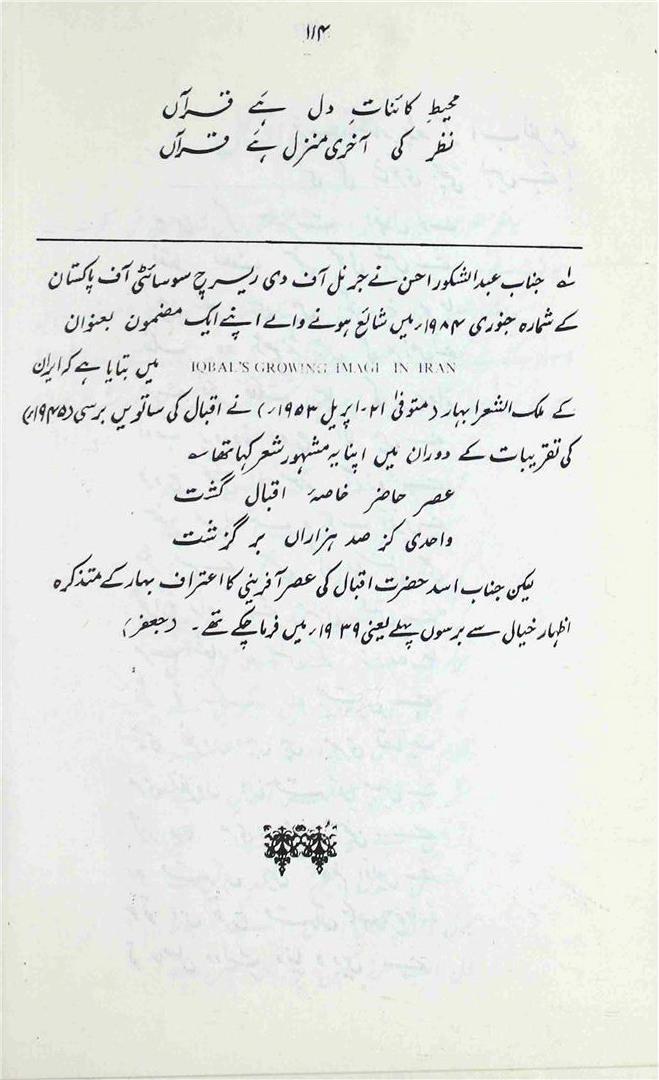 ۱۱۴
محیطِ کائناتِ دل ہَے قرآں
نظر کی آخری منزل ہَے قرآں
لے جناب عبدالشکور احسن نے جرنل آف دی ریسرچ سوسائٹی آف پاکستان
کے شمارہ جنوری ۱۹۸۴ء میں شائع ہونے والے اپنے ایک مضمون بعنوان
IQBAL'S GROWING IMAGE IN IRAN میں بتایا ہے کہ ایران
کے ملک الشعرا بہار (متوفیٰ ۲۱۔اپریل ۱۹۵۳ء) نے اقبال کی ساتویں برسی (۱۹۴۵ء)
کی تقریبات کے دوران میں اپنا یہ مشہور شعر کہا تھا ؎
عصر حاضر خاصۂ اقبال گشت
واحدی کز صد ہزاراں بر گزشت
لیکن جناب اسد حضرت اقبال کی عصر آفرینی کا اعتراف بہار کے متذکرہ
اظہارِ خیال سے برسوں پہلے یعنی ۱۹۳۹ء میں فرما چکے تھے۔ (جعفر)